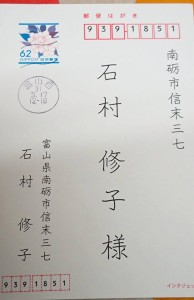 郵便はがき
62
NIPPON
9391851
南砺市信末三七
石村修子様
富山県南砺市信末三七
石村修子
9391851
インクジェッ